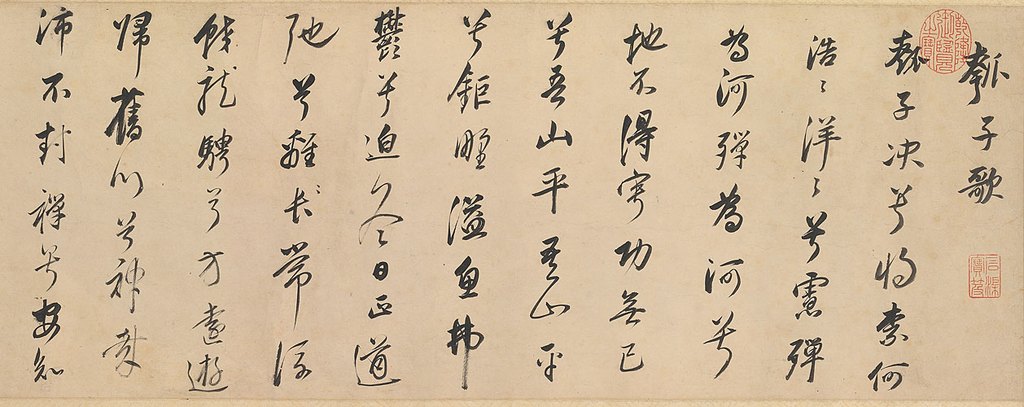 瓠子歌
瓠子决兮将柰何
浩〻洋〻兮慮殫
為河殫為河兮
地不得寧功無已
兮吾山平吾山平
兮鉅野溢魚弗
鬱兮迫冬日正道
弛兮離長常流
蛟龍騁兮方遠遊
歸舊川兮神哉
沛不封禪兮安知
乾隆御覽之寶
石渠寶笈